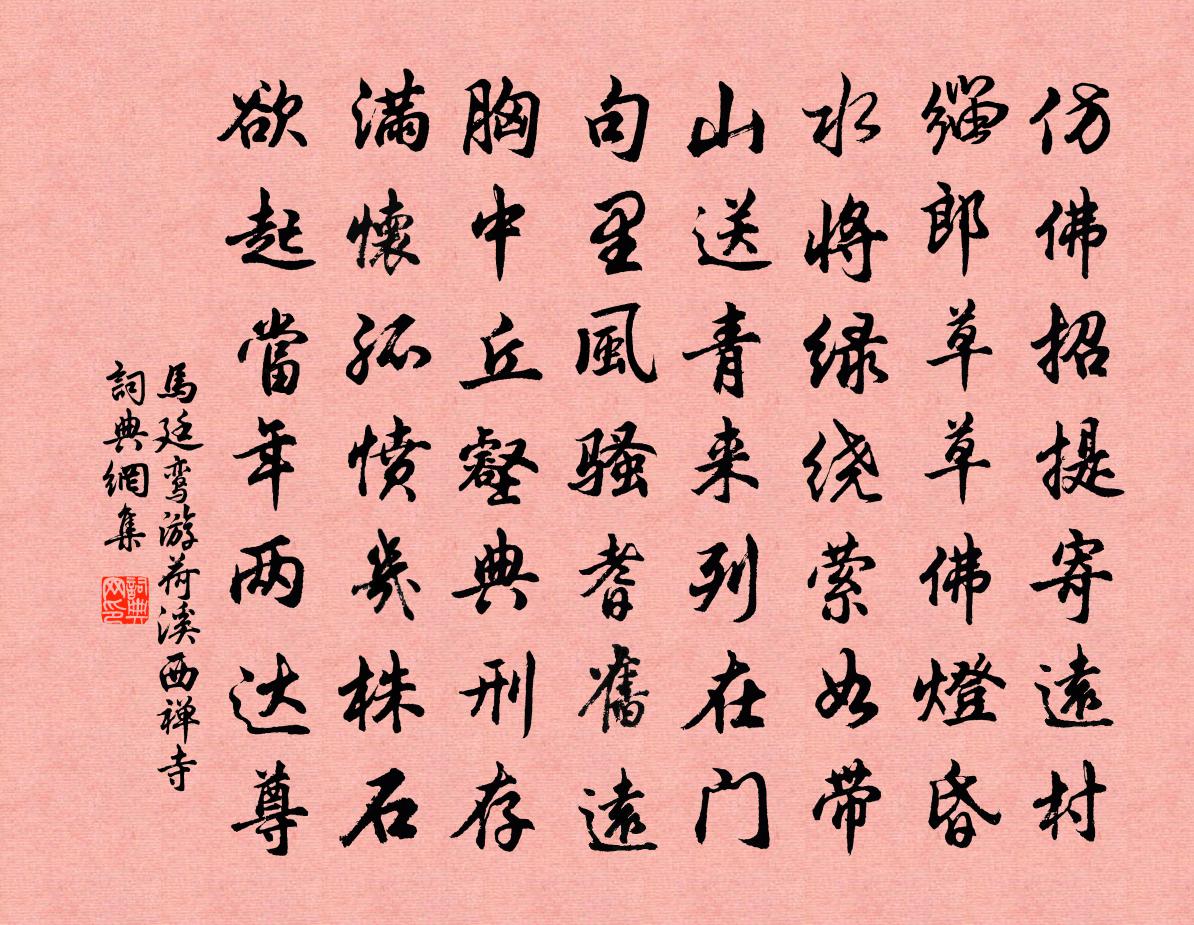 仿佛招提寄遠村
繩郎草草佛燈昏
水将绿绕萦如带
山送青来列在门
句里風骚耆舊遠
胸中丘壑典刑存
满懷孤愤幾株石
欲起當年两达尊
馬廷鸾游荷溪西禅寺
詞典網集
詞典网印